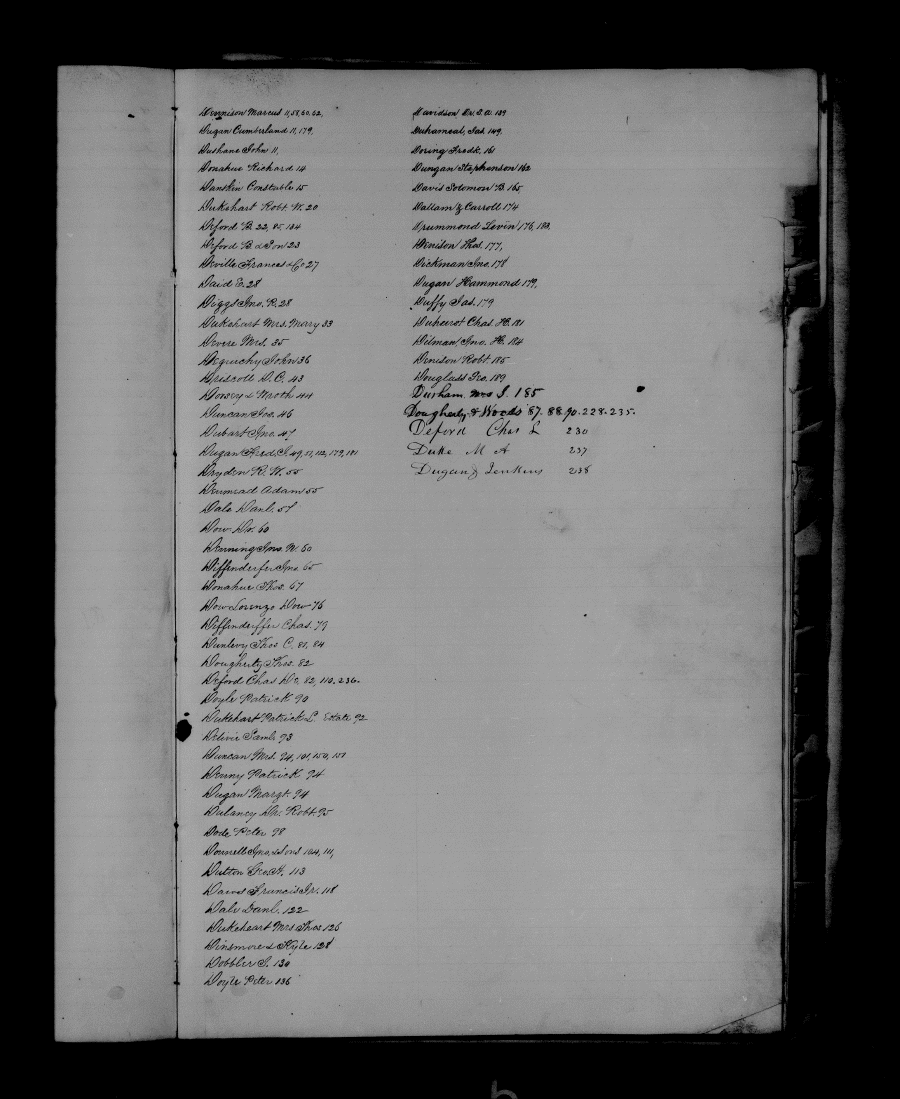 Dennison Marcus 11, 58, 60, 62,
Dugan Cumberland 11, 179,
Dushane John 11,
Donahue Richard 14
Danskin Constable 15
Dukehart Robt. W. 20
Deford B. 22, 85, 184
Deford B & Son 23
Deville Frances & Co 27
Daid E. 28
Diggs Jno. R. 28
Dukehart Mrs. Marry 33
Devere Mrs. 35
John 36
Driscoll D. C. 43
Dorsey & Wroth 44
Duncan Jos. 46
Dubart Jno. 47
Dugan Fredk. J. 49, 51, 112, 179, 181
Dryden R. W. 55
Adam 55
Dale Danl. 57
Dow Dr. 60
Denning Jno. W. 60
Diffenderfer Jno. 65
Donahue Thos. 67
Dow Lorenzo Dow 76
Diffenderffer Chas. 79
Dunlevy Thos C. 81, 84
Dougherty Thos. 82
Deford Chas D. 82, 110, 236.
Doyle Patrick 90
Dukehart Patrick L Estate 92
Delivie Saml. 93
Duncan Mrs. 94, 101, 150, 151
Denny Patrick 94
Dugan Margt. 94
Dulancy Dr. Robt. 95
Dode Peter 98
Donnell Jno. & Sons 104, 111,
Dutton Geo. A. 113
David Francis Jr. 118
Dale Danl. 122
Dukeheart Mrs Thos 126
Dinsmore & Kyle 128
Dobbler J. 130
Doyle Peter 136
Davidson Dr. C. A. 139
Duhameal, Jas. 149,
Doring Fredk. 161
Dungan Stephenson 162
Davis Solomon B. 165
Dallam & Carroll 174
Drummond Levin 176, 183,
Denison Thos. 177,
Dickman Jno. 178
Dugan Hammond 179,
Duffy Jas. 179
Chas. H. 181
Dilman, Jno. H. 184
Denison Robt. 185
Douglass Geo. 189
Durham J. 185
Dougherty & Woods 87. 88. 90. 228. 235.
Deford Chas L 230
Duke M A 237
Dugan & Jenkins 238